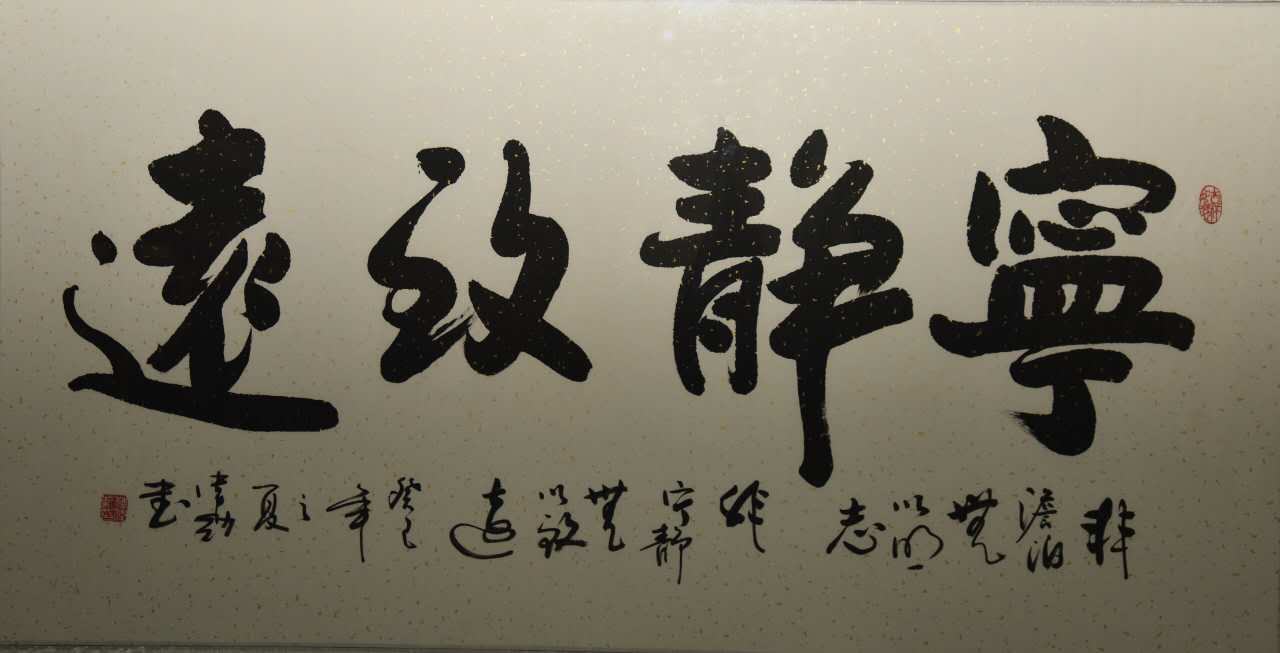 寧靜致遠
非澹泊無以明志 非宁靜無以致遠 癸巳年之夏 書